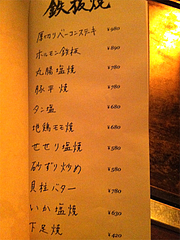 鉄板焼
厚切りベーコンステーキ ¥980
ホルモン鉄板 ¥780
丸腸塩焼 ¥780
豚平焼 ¥780
タン塩 ¥680
地鶏モモ焼 ¥680
せせり塩焼 ¥580
砂ずり炒め ¥580
貝柱バター ¥780
いか塩焼 ¥630
下足焼 ¥420